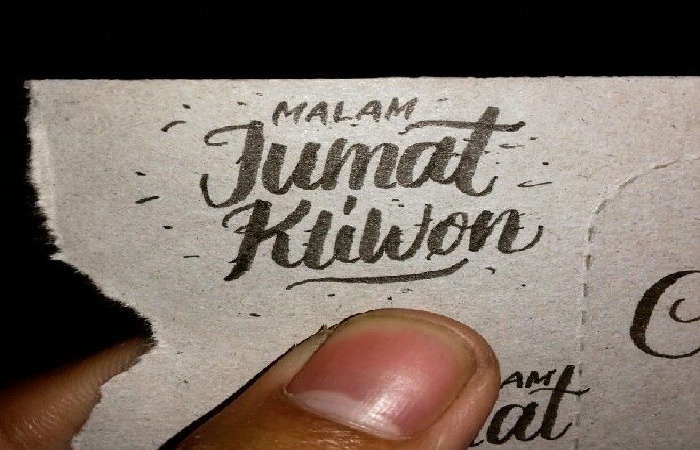 MALAM
Jumat
Kliwon
AM
at